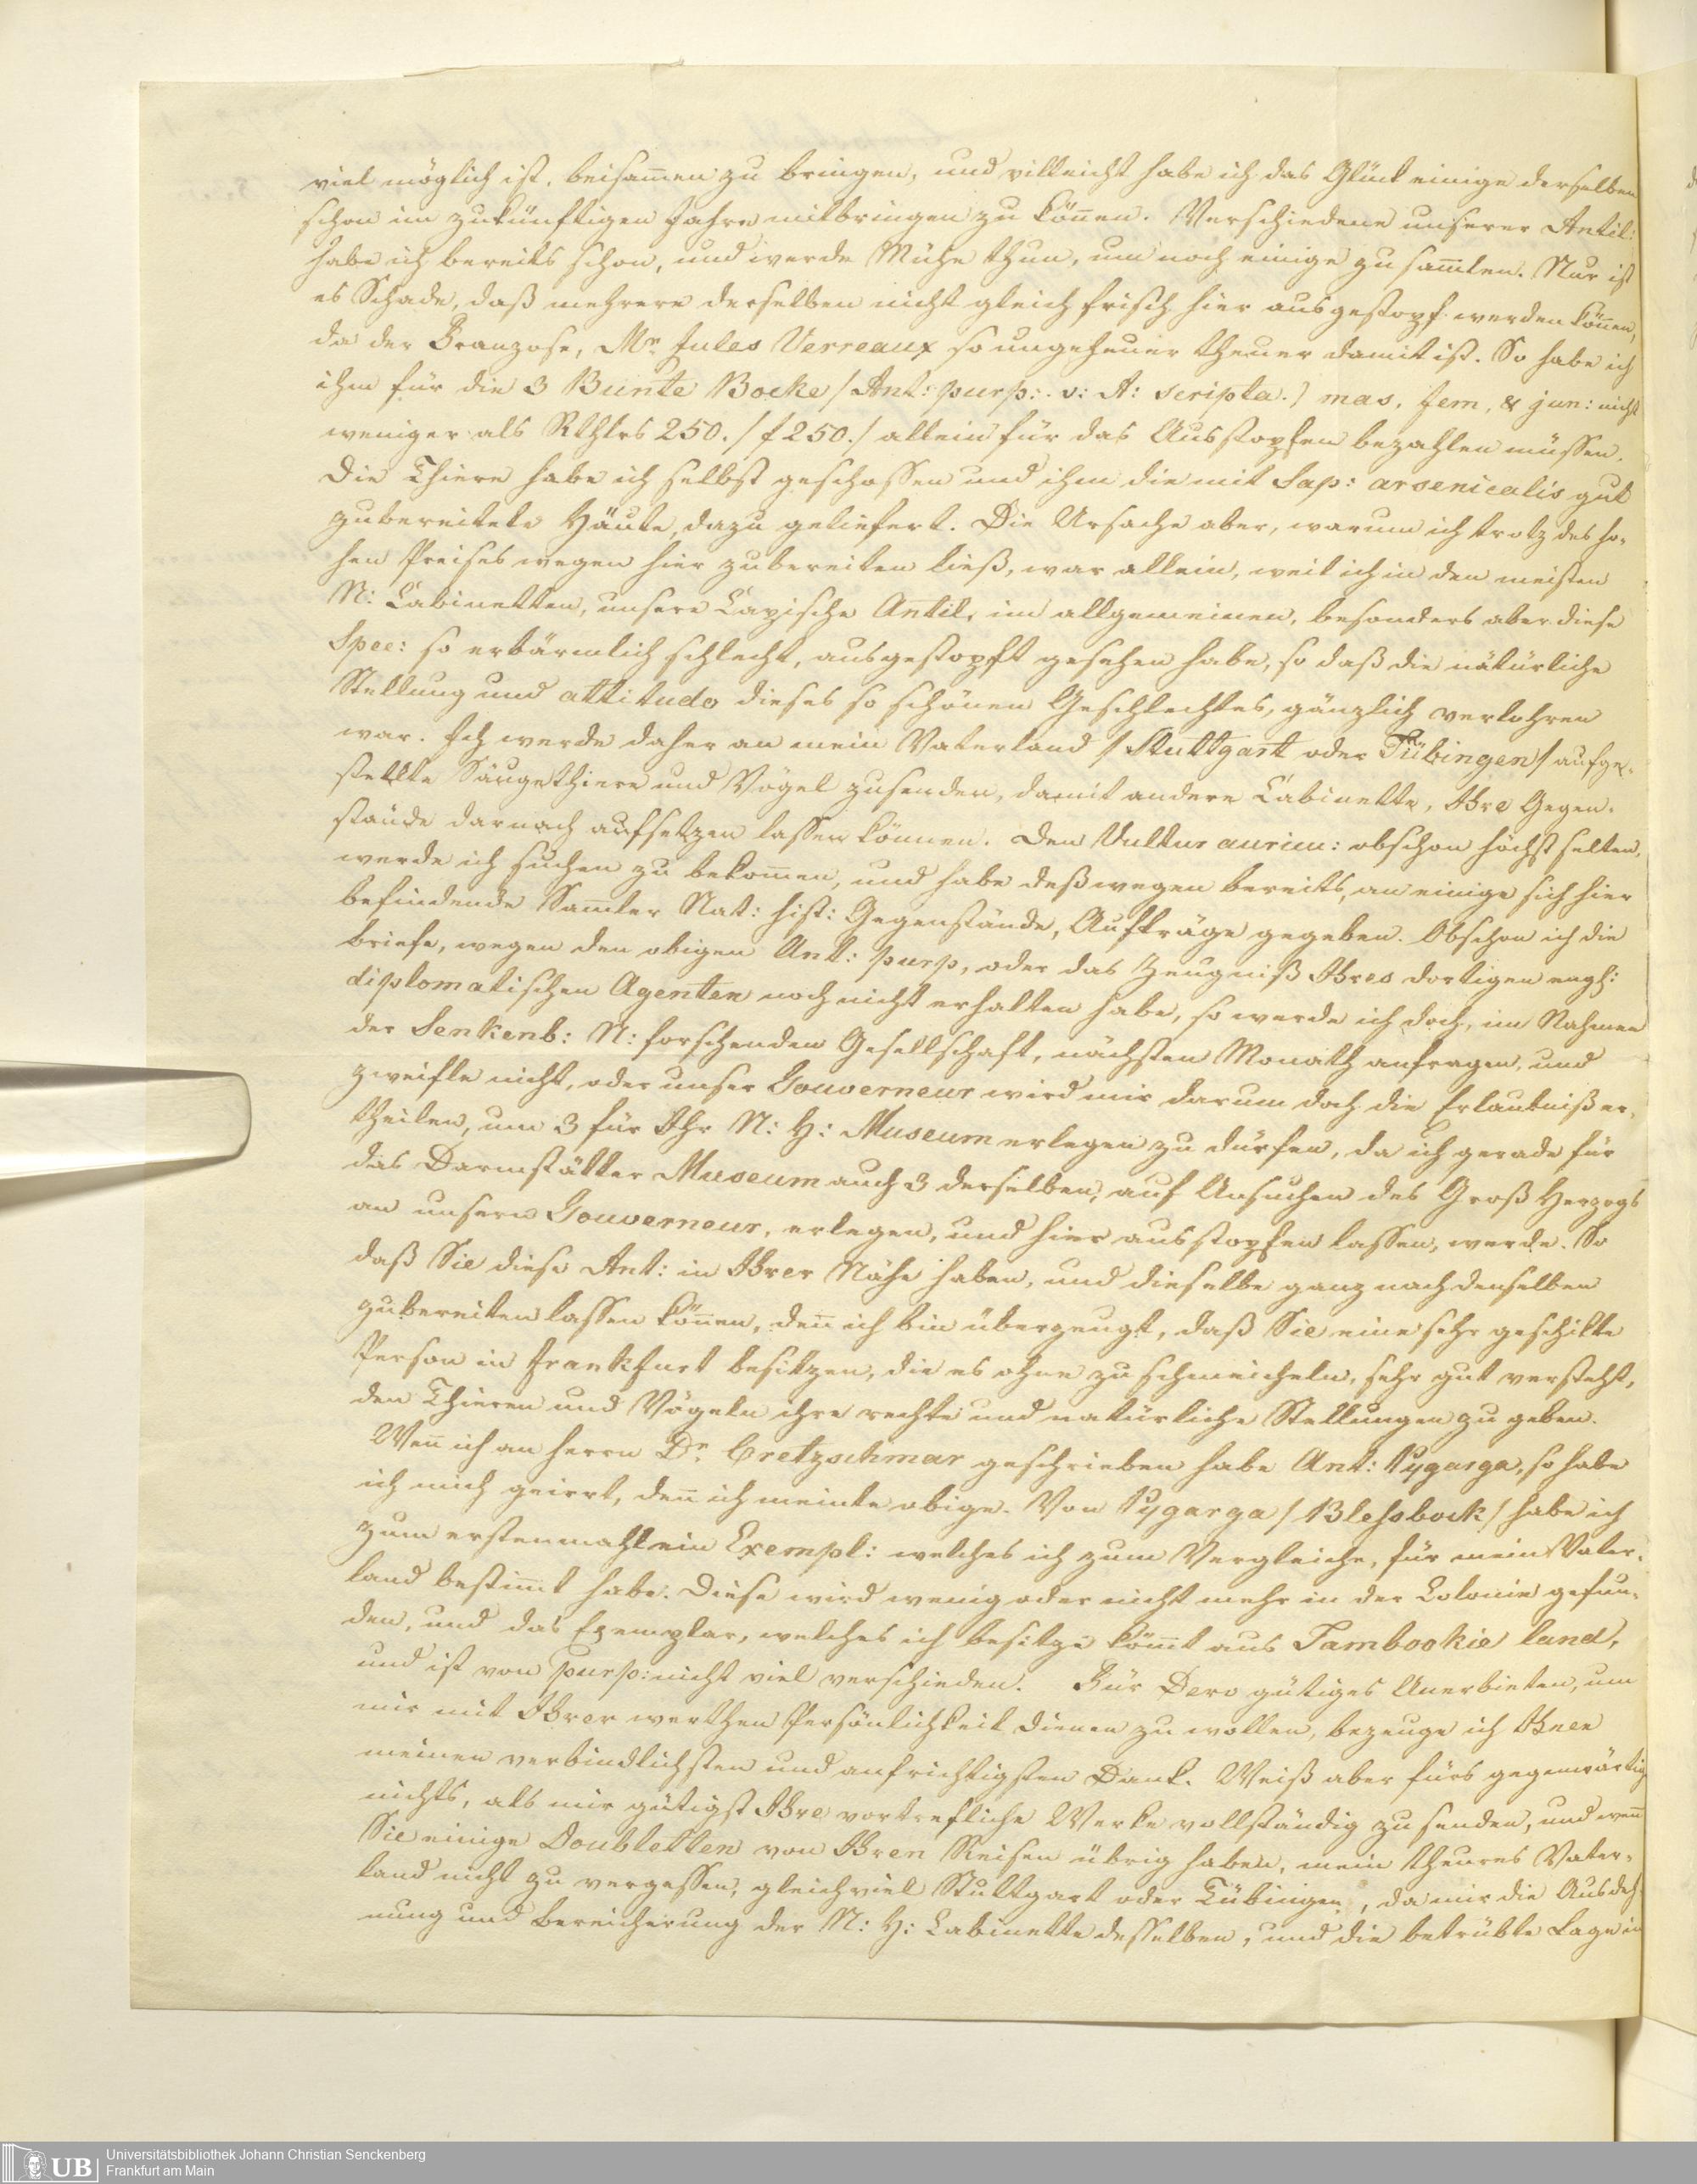 viel möglich ist, beisam̄en zu bringen, und villeicht habe ich das Glück einige derselben
schon im zukünftigen Jahre mitbringen zu kön̄en. Verschiedene unserer Antil:
habe ich bereits schon, und werde Mühe thun, um noch einige zu sam̄len. Nur ist
es Schade, daß mehrere derselben nicht gleich frisch hier ausgestopf werden kön̄en,
da der Franzose, Mr. Jules Verreaux so ungeheuer theuer damit ist. So habe ich
ihm für die 3 Bunte Bocke / Ant: purp: v: A: scripta.) mas. fem. & jun: nicht
weniger als Rthlrs 250. / f 250./ allein für das Ausstopfen bezahlen müssen.
Die Thiere habe ich selbst geschossen und ihm die mit Sap: arsenicalis gut
zubereitete Häute, dazu geliefert. Die Ursache aber, warum ich trotz des ho-
hen Preises wegen hier zubereiten ließ, war allein, weil ich in den meisten
N: Cabinetten, unsere Capische Antil. im allgemeinen, besonders aber diese
Spec: so erbärmlich schlecht, ausgestopft gesehen habe, so daß die nätürliche
Stellung und attitudo dieses so schönen Geschlechtes, gänzlich verlohren
war. Ich werde daher an mein Vaterland / Stuttgart oder Tübingen / aufge-
stellte Säugethiere und Vögel zusenden, damit andere Cabinette, Ihre Gegen-
stände darnach aufsetzen lassen können. Den Vultur auricu: obschon höchst selten,
werde ich suchen zu bekom̄en, und habe deßwegen bereits, an einige sich hier
befindende Sam̄ler Nat: hist: Gegenstände, Aufträge gegeben. Obschon ich die
Briefe, wegen den obigen Ant: purp, oder das Zeugniß Ihres dortigen engl:
diplomatischen Agenten noch nicht erhalten habe, so werde ich doch, im Nahmen
der Senkenb: N: forschenden Gesellschaft, nächsten Monath anfragen, und
zweifle nicht, oder unser Gouverneur wird mir darum doch die Erlaubniß er-
theilen, um 3 für Ihr N: H: Museum erlegen zu dürfen, da ich gerade für
das Darmstätter Museum auch 3 derselben, auf Ansuchen des Groß Herzogs
an unsern Gouverneur, erlegen, und hier ausstopfen lassen, werde. So
daß Sie diese Ant: in Ihrer Nähe haben, und dieselbe ganz nach denselben
zubereiten lassen kön̄en, den̄ ich bin überzeugt, daß Sie eine sehr geschikte
Person in Frankfurt besitzen, die es ohne zu schmeicheln, sehr gut versteht,
den Thieren und Vögeln ihre rechte und natürliche Stellungen zu geben.
Wen̄ ich an Herrn Dr. Cretzschmar geschrieben habe Ant: Pygarga, so habe
ich mich geirrt, den̄ ich meinte obige. Von Pygarga / Blessbock / habe ich
zum erstenmahl ein Exempl: welches ich zum Vergleiche, für mein Vater-
land bestim̄t habe. Diese wird wenig oder nicht mehr in der Colonie gefun-
den, und das Exemplar, welches ich besitze köm̄t aus Tambookie land,
und ist von purp: nicht viel verschieden. Für Dero gütiges Anerbieten, um
mir mit Ihrer werthen Persönlichkeit dienen zu wollen, bezeuge ich Ihnen
meinen verbindlichsten und aufrichtigsten Dank. Weiß aber fürs gegenwärtig
nichts, als mir gütigst Ihre vortrefliche Werke vollständig zu senden, und wen̄
Sie einige Doubletten von Ihren Reisen übrig haben, mein theures Vater-
land nicht zu vergessen, gleichviel Stuttgart oder Tübingen, da mir die Ausdeh-
nung und Bereicherung der N: H: Cabinette desselben, und die betrübte Lage in
Universitätsbibliothek Johann Christian Senckenberg
Frankfurt am Main
UB